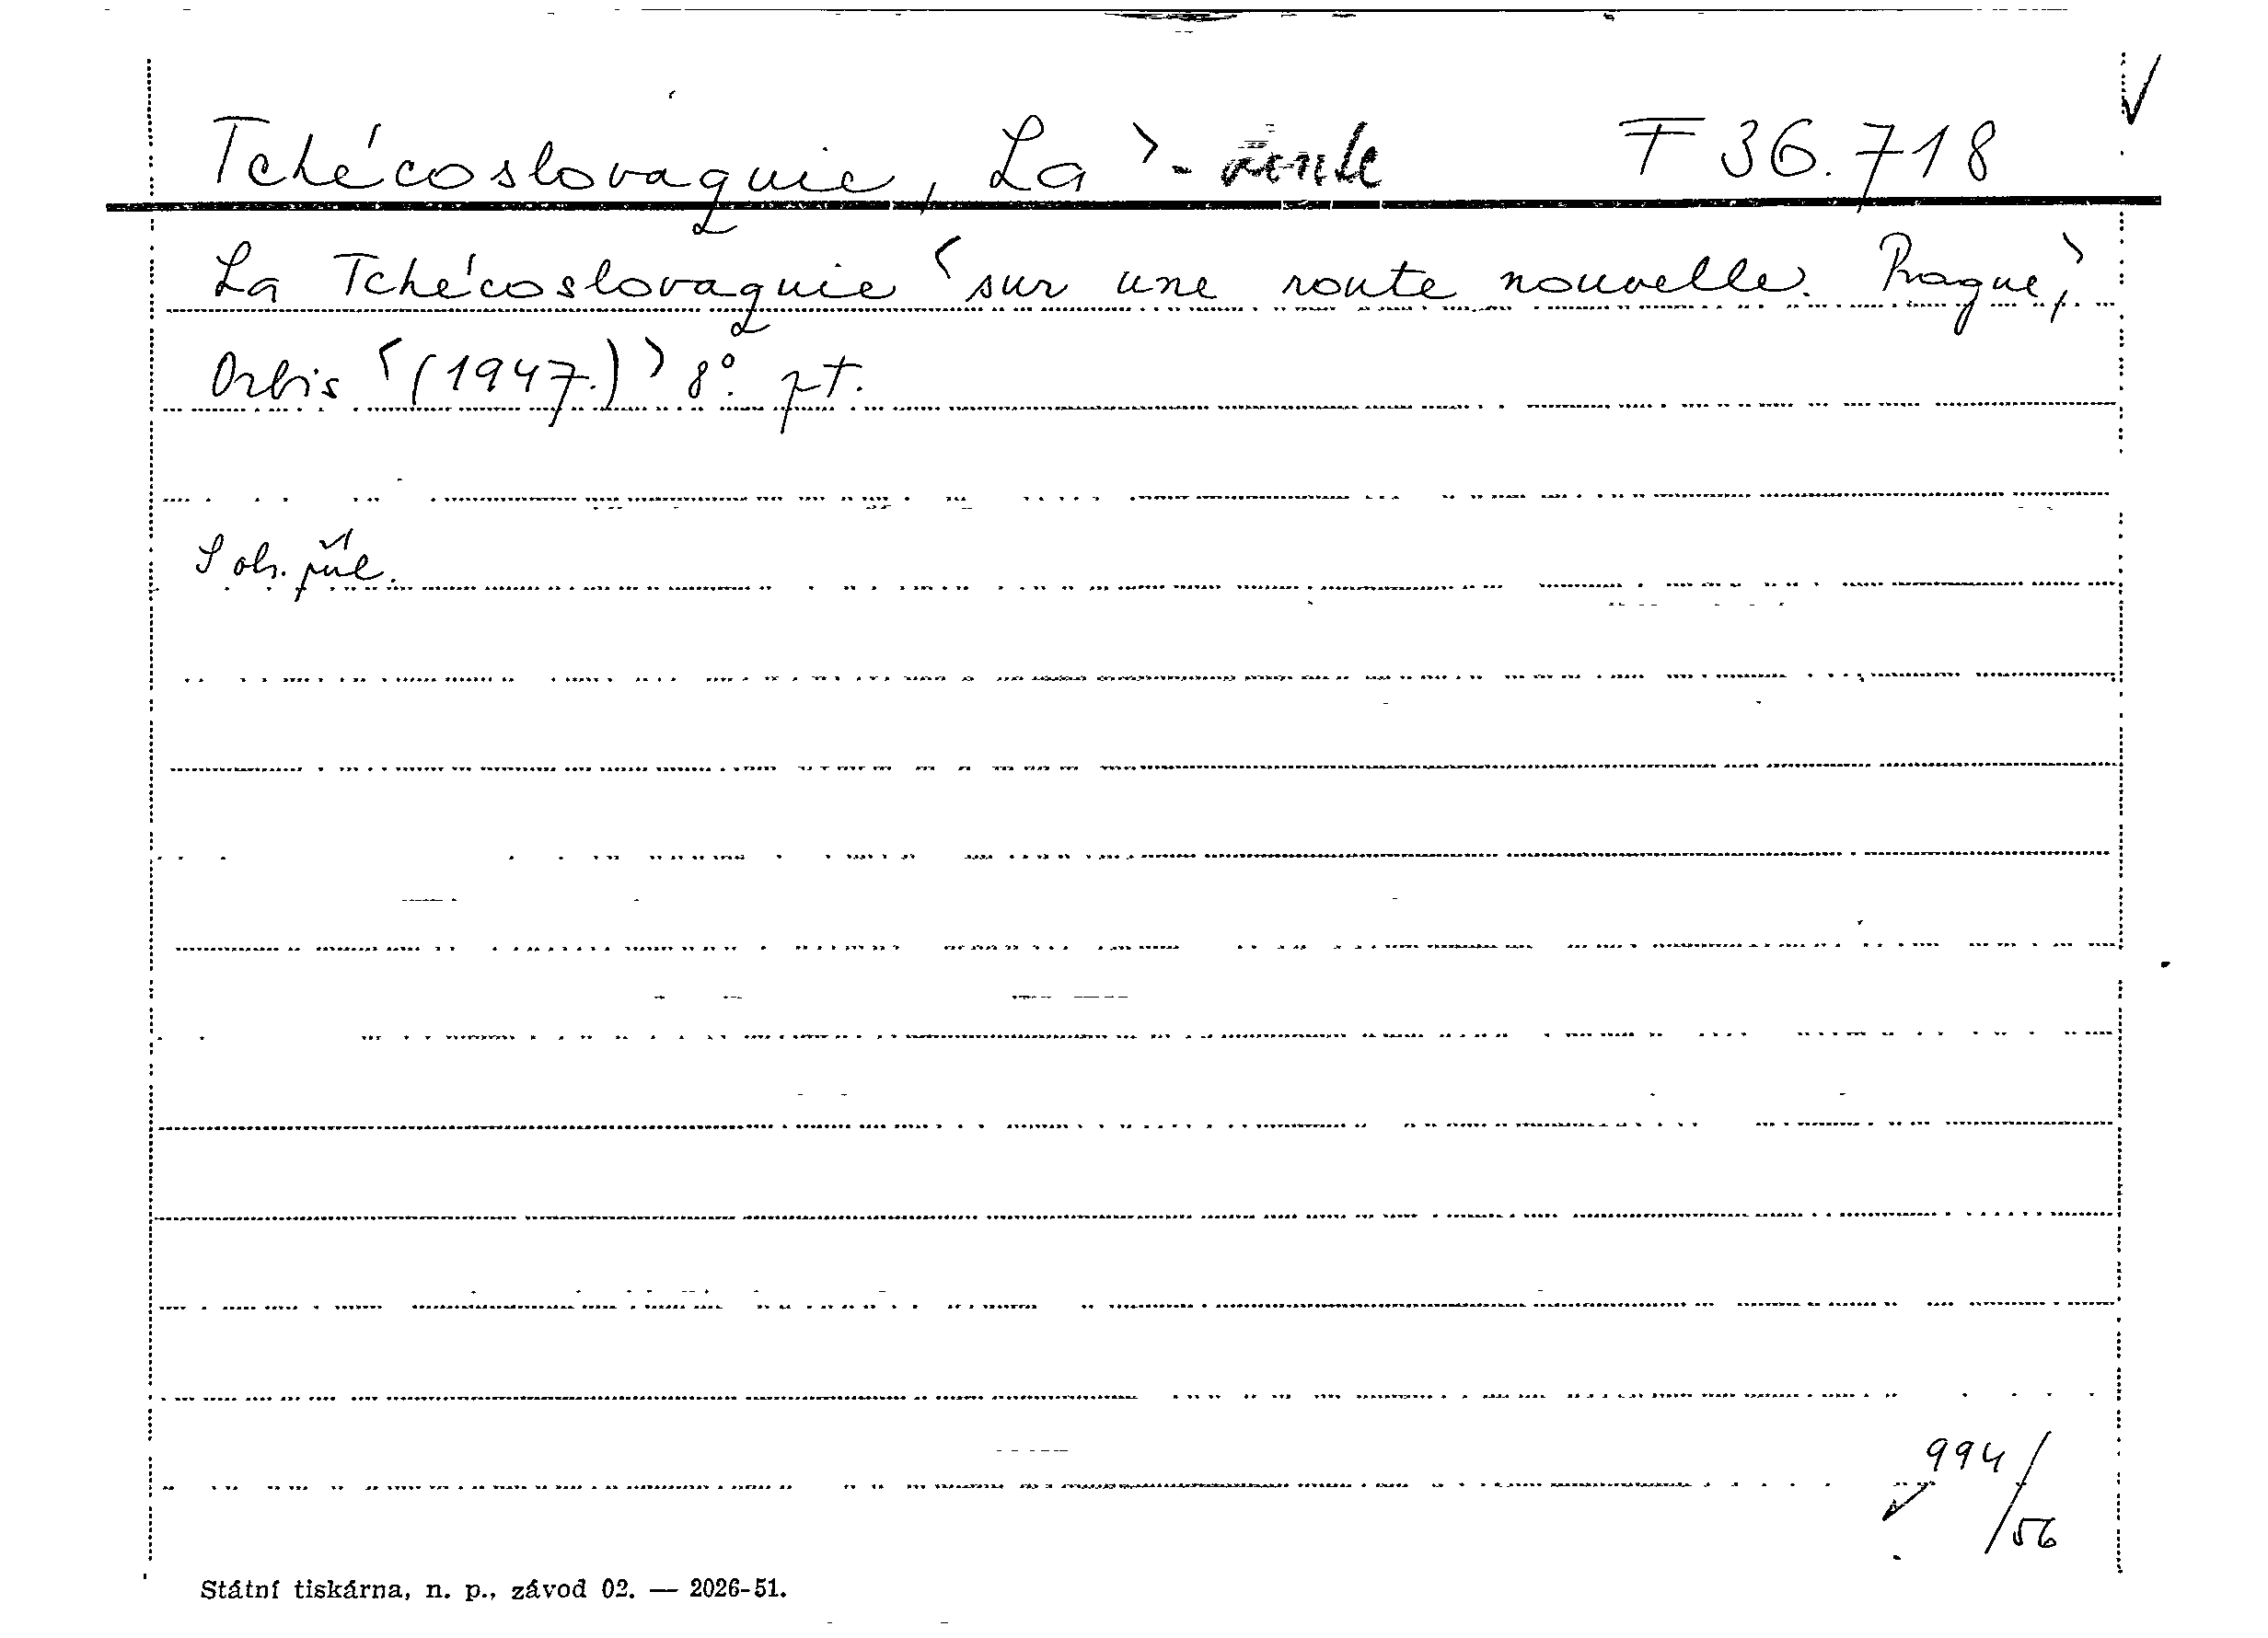 Tchécoslovaquie, La > - F 36.718
La Tchécoslovaquie < sur une route nouvelle. Prague, >
Orbis < (1947.) > 8°. pt.
S ob. příl.
994/56
Státní tiskárna, n. p., závod 02. — 2026-51.